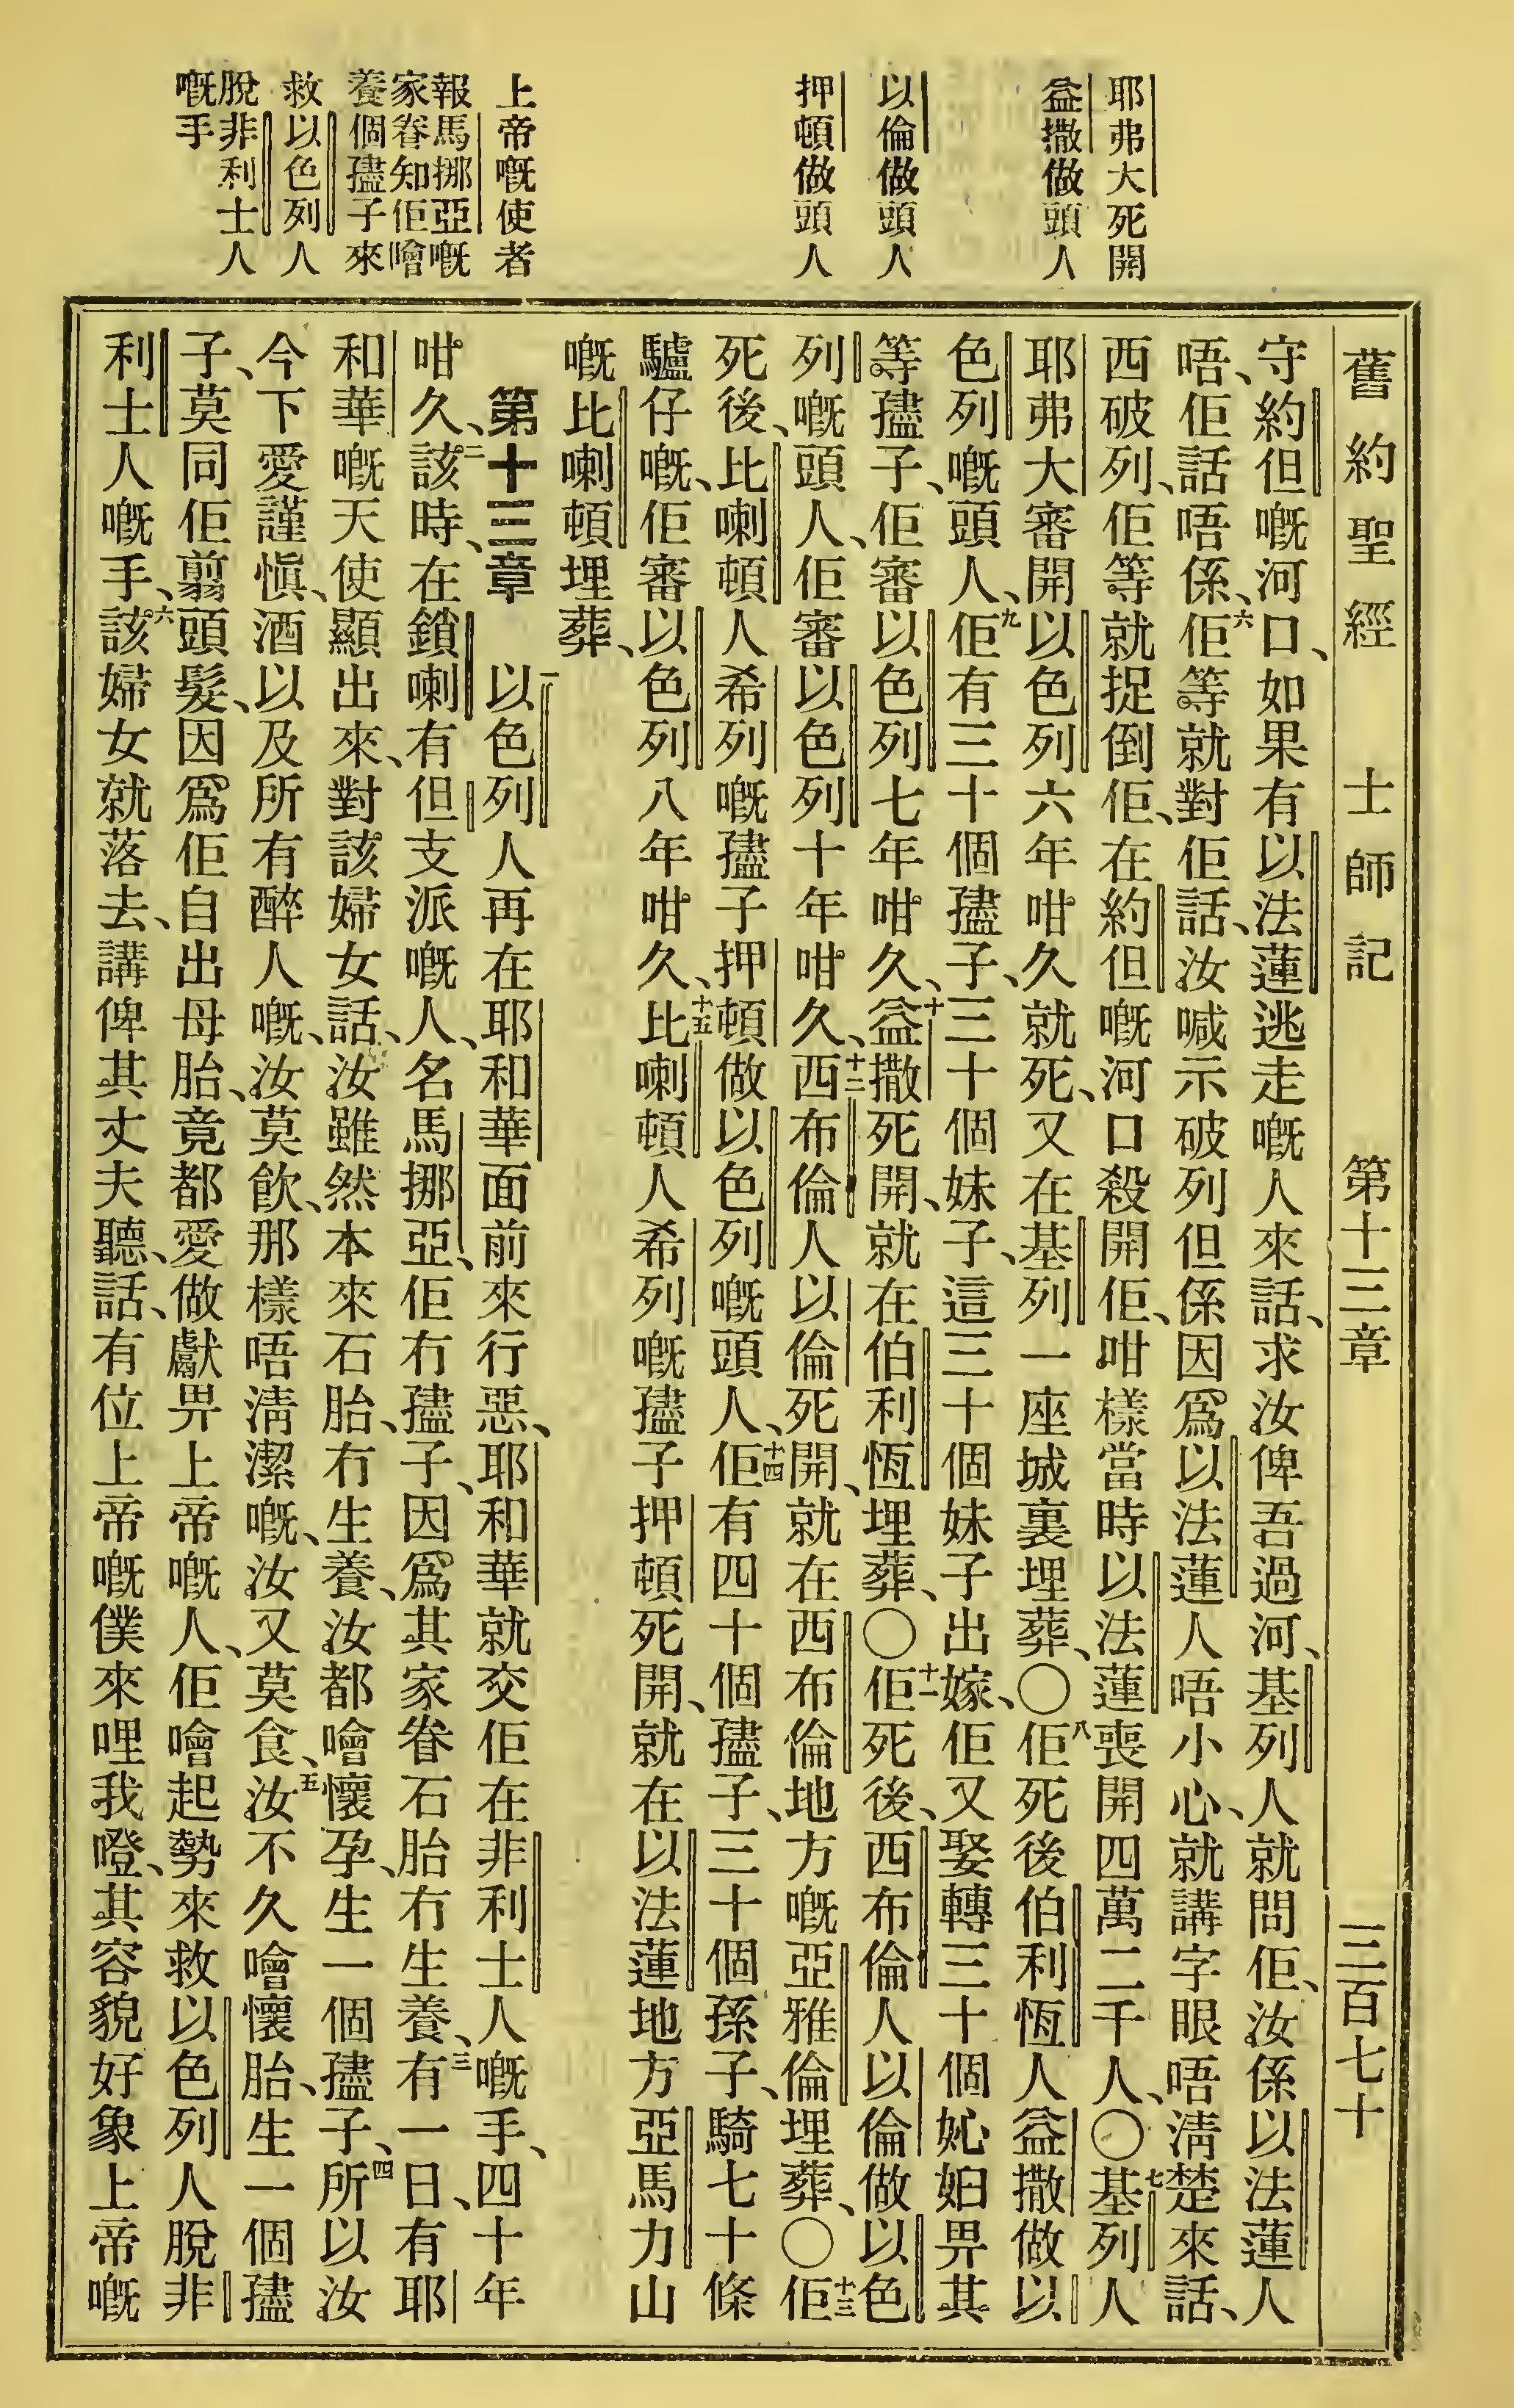 舊約聖經　士師記　第十三章　三百七十
耶弗大死開
益撒做頭人
以倫做頭人
押頓做頭人
上帝嘅使者
報馬挪亞嘅
家眷知佢噲
養個𡥧子來
救以色列人
脫非利士人
嘅手
守約但嘅河口、如果有以法蓮逃走嘅人來話、求汝俾吾過河、基列人就問佢、汝係以法蓮人
唔、佢話唔係、六佢等就對佢話、汝喊示破列但係因爲以法蓮人唔小心、就講字眼唔淸楚來話、
西破列、佢等就捉倒佢、在約但嘅河口殺開佢、咁樣當時以法蓮喪開四萬二千人、〇七基列人
耶弗大審開以色列六年咁久就死、又在基列一座城裏埋葬、〇八佢死後伯利恆人益撒做以
色列嘅頭人、九佢有三十個𡥧子、三十個妹子、這三十個妹子出嫁、佢又娶轉三十個妣妇畀其
等𡥧子、佢審以色列七年咁久、十益撒死開、就在伯利恆埋葬、〇十一佢死後、西布倫人以倫做以色
列嘅頭人、佢審以色列十年咁久、十二西布倫人以倫死開、就在西布倫地方嘅亞雅倫埋葬、〇十三佢
死後、比喇頓人希列嘅𡥧子押頓做以色列嘅頭人、十四佢有四十個𡥧子、三十個孫子、騎七十條
驢仔嘅、佢審以色列八年咁久、十五比喇頓人希列嘅𡥧子押頓死開、就在以法蓮地方亞馬力山
嘅比喇頓埋葬、
第十三章　一以色列人再在耶和華面前來行惡、耶和華就交佢在非利士人嘅手、四十年
咁久、二該時、在鎖喇有但支派嘅人、名馬挪亞、佢冇𡥧子、因爲其家眷石胎冇生養、三有一日、有耶
和華嘅天使顯出來、對該婦女話、汝雖然本來石胎、冇生養、汝都噲懷孕、生一個𡥧子、四所以汝
今下愛謹愼、酒以及所有醉人嘅、汝莫飮、那樣唔淸潔嘅、汝又莫食、五汝不久噲懷胎、生一個𡥧
子、莫同佢翦頭髮、因爲佢自出母胎、竟都愛做獻畀上帝嘅人、佢噲起勢來救以色列人脫非
利士人嘅手、六該婦女就落去、講俾其丈夫聽、話、有位上帝嘅僕來哩我嶝、其容貌好象上帝嘅